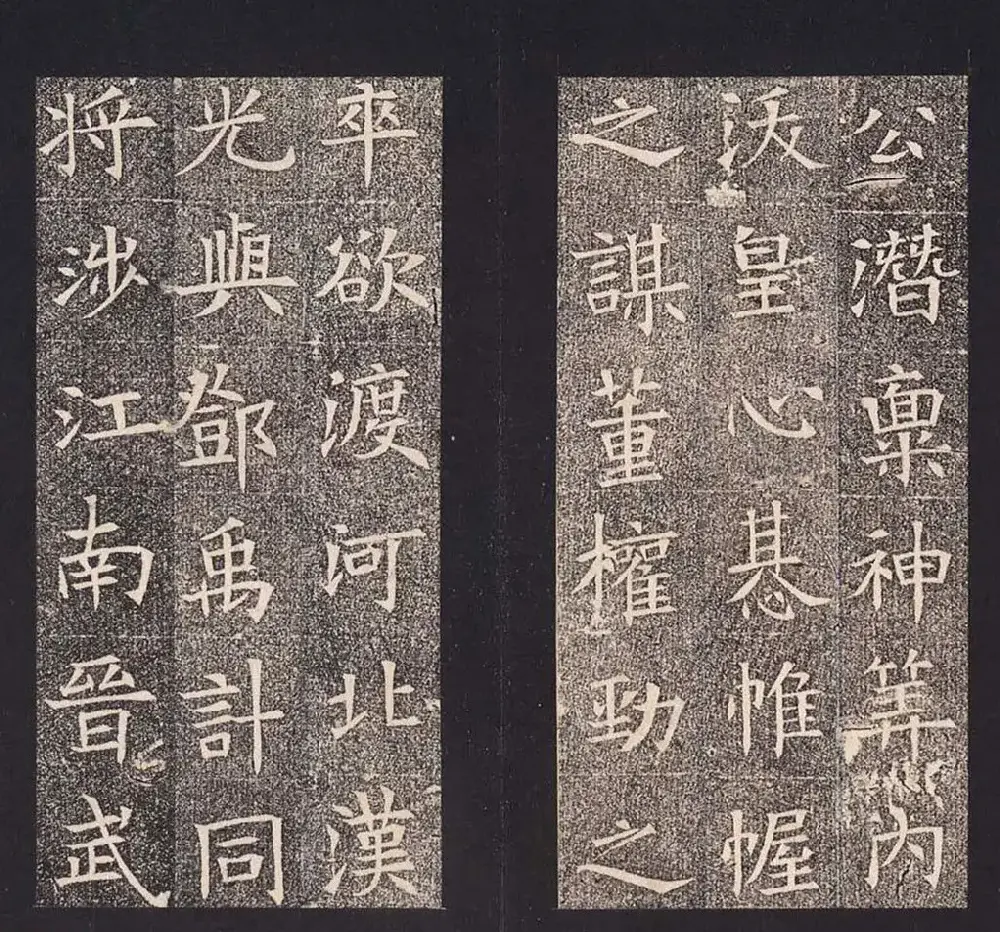 公潛稟神筭內
沃皇心惎帷幄
之謀董權勁之
卒欲渡河北漢
光與鄧禹計同
将涉江南晉武